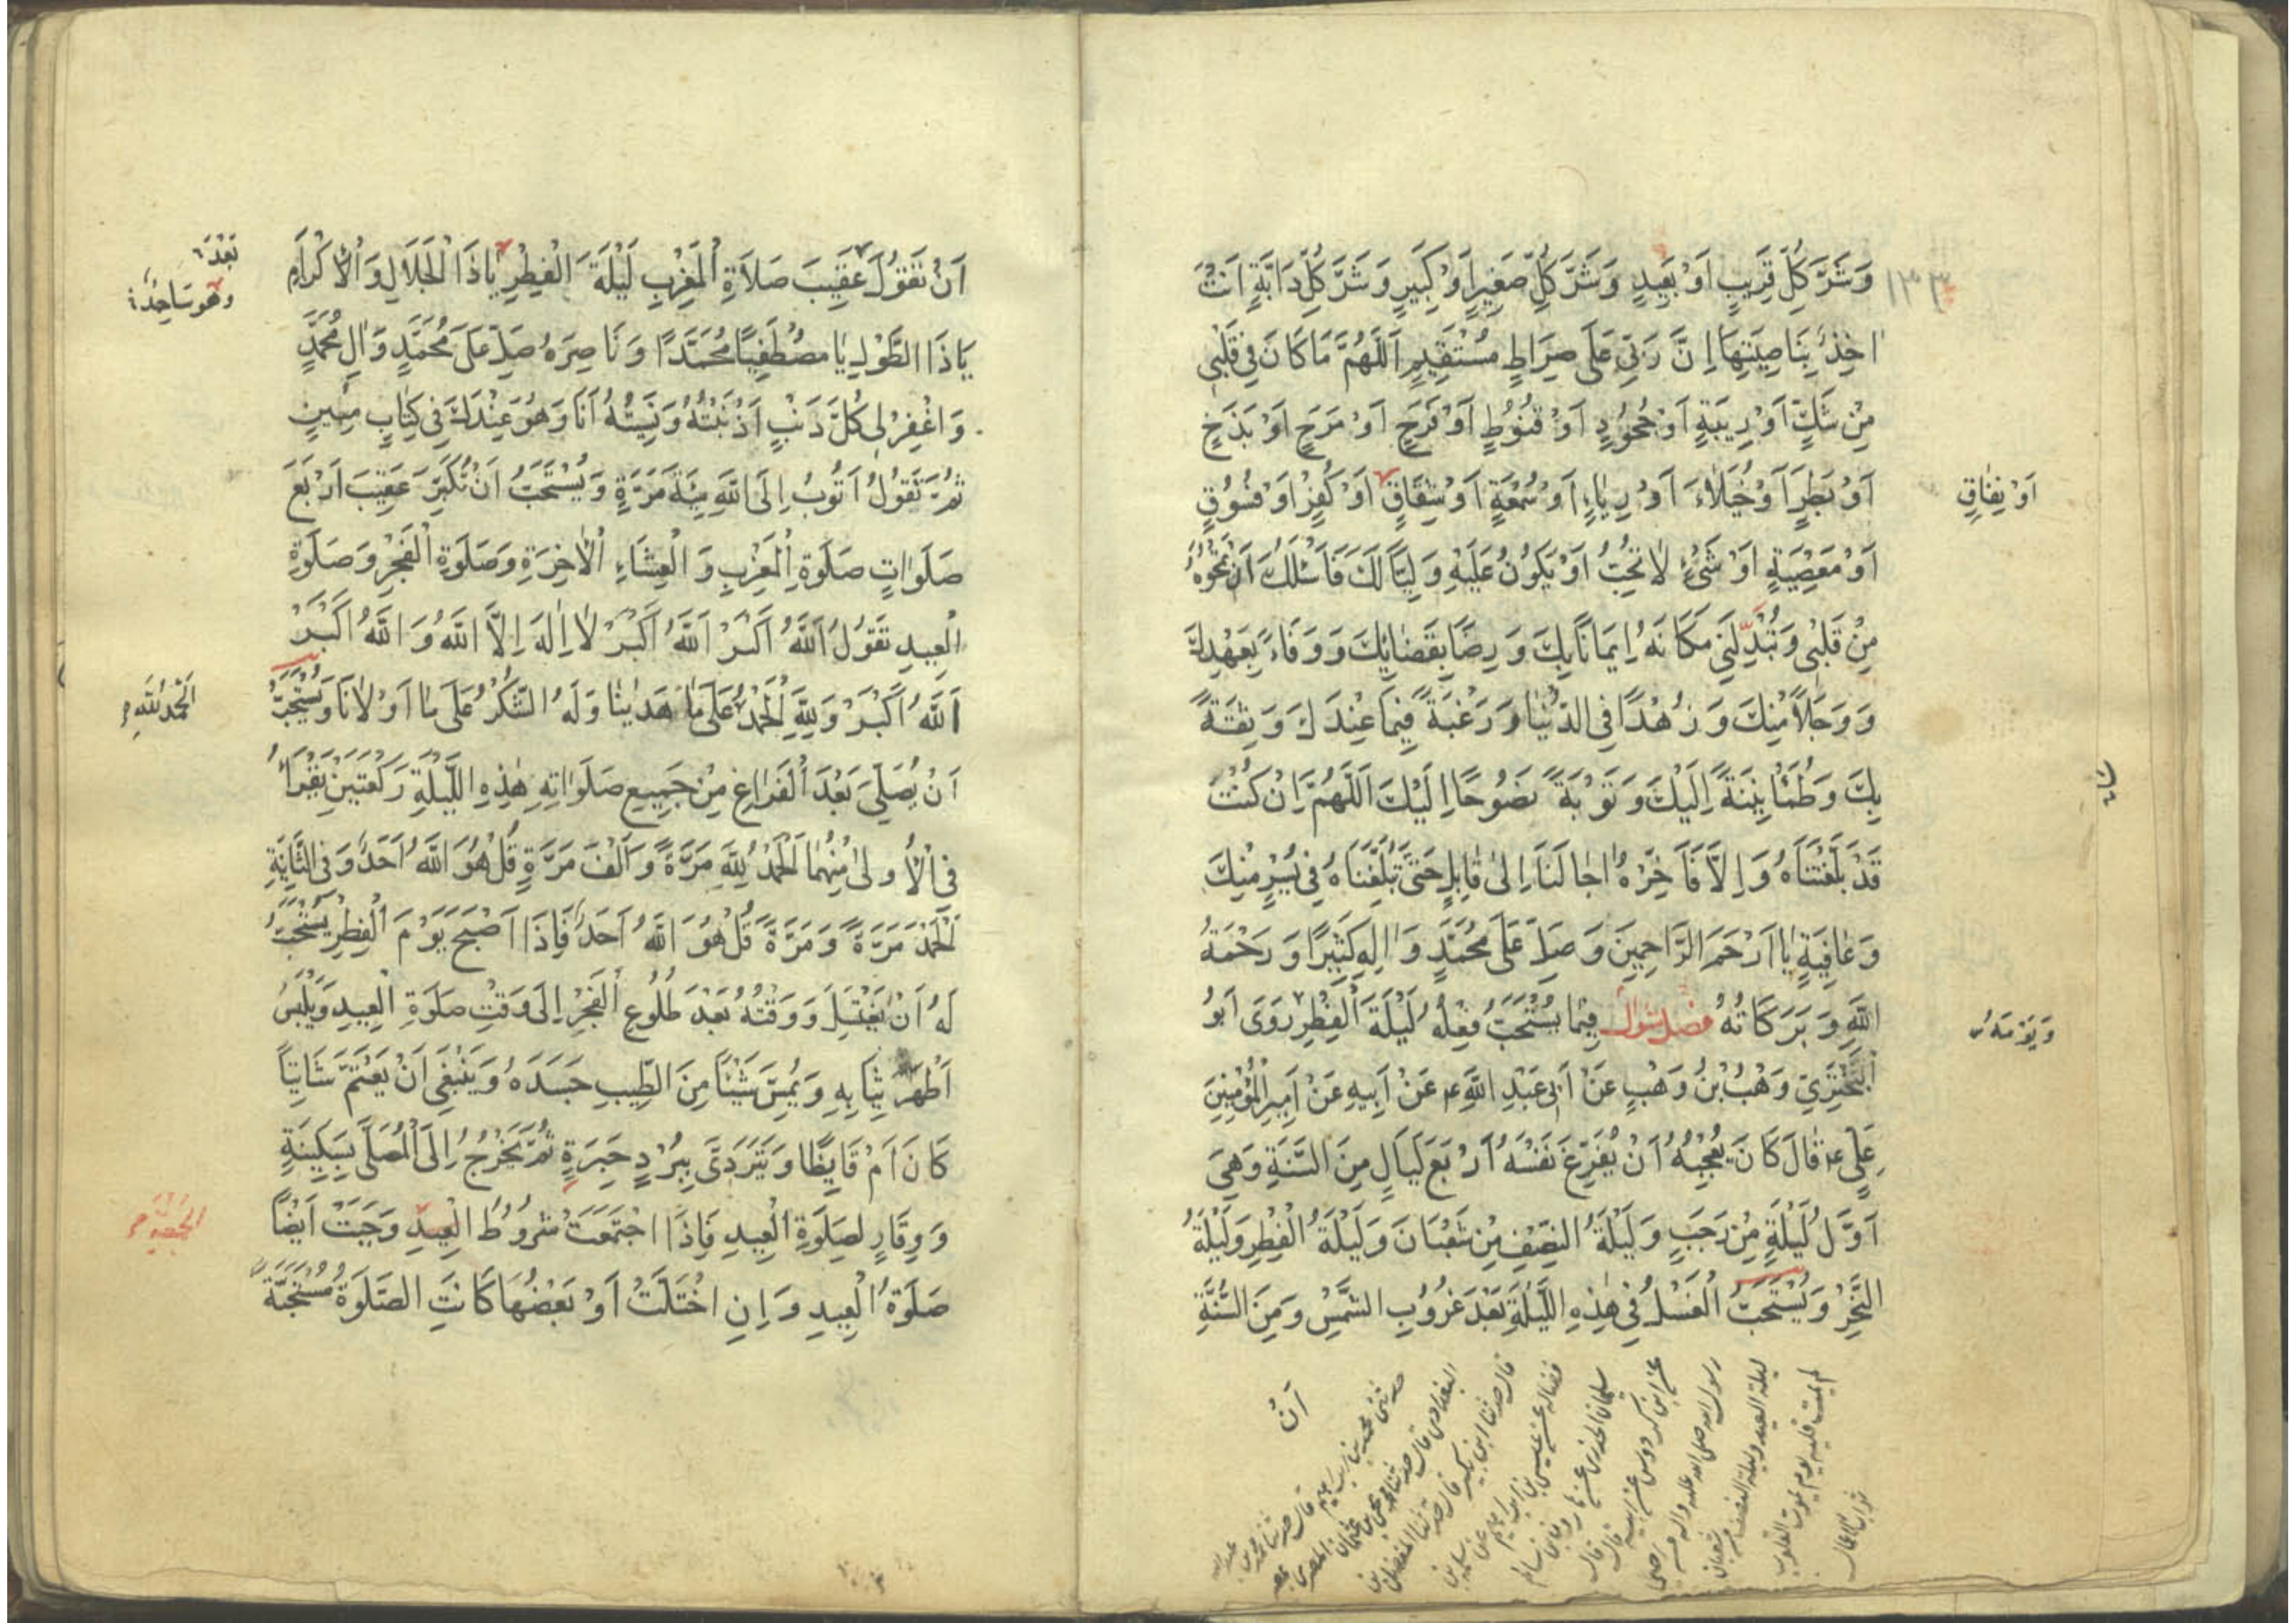 ١٣٣
وَشَرَّ كُلِّ قَرِيبٍ اَوْ بَعِيدٍ وَشَرَّ كُلِّ صَغِيرٍ اَوْ كَبِيرٍ وَشَرَّ كُلِّ دَابَّةٍ اَنْتَ
اخِذٌ بِنَاصِيَتِهَا اِنَّ رَبِّي عَلَى صِرَاطٍ مُسْتَقِيمٍ اَللّٰهُمَّ مَا كَانَ فِي قَلْبِي
مِنْ شَكٍّ اَوْ رِيبَةٍ اَوْ جُحُودٍ اَوْ قُنُوطٍ اَوْ فَرَحٍ اَوْ مَرَحٍ اَوْ بَذَخٍ
اَوْ بَطَرٍ اَوْ خُيَلَاءَ اَوْ رِيَاءٍ اَوْ سُمْعَةٍ اَوْ شِقَاقٍ اَوْ كُفْرٍ اَوْ فُسُوقٍ
اَوْ نِفَاقٍ
اَوْ مَعْصِيَةٍ اَوْ شَيْءٍ لَا تُحِبُّ اَوْ يَكُونُ عَلَيْهِ وَلِيّاً لَكَ فَاَسْئَلُكَ اَنْ تَمْحُوهُ
مِنْ قَلْبِي وَتُبَدِّلَنِي مَكَانَهُ اِيمَانًا بِكَ وَرِضًا بِقَضَائِكَ وَوَفَاءً بِعَهْدِكَ
وَوَجَلاً مِنْكَ وَزُهْدًا فِي الدُّنْيَا وَرَغْبَةً فِيمَا عِنْدَكَ وَثِقَةً
بِكَ وَطُمَأْنِينَةً اِلَيْكَ وَتَوْبَةً نَصُوحًا اِلَيْكَ اَللّٰهُمَّ اِنْ كُنْتَ
قَدْ بَلَغْتَنَاهُ وَاِلَّا فَاَخِّرْهُ اٰجَالَنَا اِلىٰ قَابِلٍ حَتّىٰ تُبَلِّغَنَاهُ فِي يُسْرٍ مِنْكَ
وَعَافِيَةٍ يَا اَرْحَمَ الرَّاحِمِينَ وَصَلِّ عَلَى مُحَمَّدٍ وَاٰلِهِ كَثِيرًا وَرَحْمَةُ
اللّٰهِ وَبَرَكَاتُهُ فصل شوال فِيمَا يُسْتَحَبُّ فِعْلُهُ لَيْلَةَ الْفِطْرِ رَوَى اَبُو
وَيَوْمَهُ
الْبَخْتَرِيِّ وَهْبُ بْنُ وَهْبٍ عَنْ اَبِي عَبْدِ اللّٰهِ ع عَنْ اَبِيهِ عَنْ اَمِيرِ الْمُؤْمِنِينَ
عَلِيٍّ ع قَالَ كَانَ يُعْجِبُهُ اَنْ يُفَرِّغَ نَفْسَهُ اَرْبَعَ لَيَالٍ مِنَ السَّنَةِ وَهِيَ
اَوَّلُ لَيْلَةٍ مِنْ رَجَبٍ وَلَيْلَةُ النِّصْفِ مِنْ شَعْبَانَ وَلَيْلَةُ الْفِطْرِ وَلَيْلَةُ
النَّحْرِ وَيُسْتَحَبُّ الْغُسْلُ فِي هٰذِهِ اللَّيْلَةِ بَعْدَ غُرُوبِ الشَّمْسِ وَمِنَ السُّنَّةِ
اَنْ
رسول الله صلى الله عليه واله
ليلة العيد وليلة النصف من شعبان
لم يمت قلبه يوم يموت القلوب
ثواب الاعمال
اَنْ تَقُولَ عَقِيبَ صَلَاةِ الْمَغْرِبِ لَيْلَةَ الْفِطْرِ يَا ذَا الْجَلَالِ وَالْاِكْرَامِ
بَعْدَ
وَهُوَ سَاجِدٌ
يَا ذَا الطَّوْلِ يَا مُصْطَفِيًا مُحَمَّدًا وَنَاصِرَهُ صَلِّ عَلَى مُحَمَّدٍ وَاٰلِ مُحَمَّدٍ
وَاغْفِرْ لِي كُلَّ ذَنْبٍ اَذْنَبْتُهُ وَنَسِيتُهُ اَنَا وَهُوَ عِنْدَكَ فِي كِتَابٍ مُبِينٍ
ثُمَّ تَقُولُ اَتُوبُ اِلَى اللّٰهِ مِئَةَ مَرَّةٍ وَيُسْتَحَبُّ اَنْ تُكَبِّرَ عَقِيبَ اَرْبَعَ
صَلَوَاتٍ صَلَوةِ الْمَغْرِبِ وَالْعِشَاءِ الْاٰخِرَةِ وَصَلَوةِ الْفَجْرِ وَصَلَوةِ
الْعِيدِ تَقُولُ اَللّٰهُ اَكْبَرُ اَللّٰهُ اَكْبَرُ لَا اِلٰهَ اِلَّا اللّٰهُ وَاللّٰهُ اَكْبَرُ
اَللّٰهُ اَكْبَرُ وَلِلّٰهِ الْحَمْدُ عَلَى مَا هَدٰينَا وَلَهُ الشُّكْرُ عَلَى مَا اَوْلَانَا وَيُسْتَحَبُّ
اَلْحَمْدُ لِلّٰهِ
اَنْ يُصَلِّيَ بَعْدَ الْفَرَاغِ مِنْ جَمِيعِ صَلَوَاتِهِ هٰذِهِ اللَّيْلَةِ رَكْعَتَيْنِ يَقْرَاُ
فِي الْاُولىٰ مِنْهُمَا اَلْحَمْدُ لِلّٰهِ مَرَّةً وَاَلْفَ مَرَّةٍ قُلْ هُوَ اللّٰهُ اَحَدٌ وَفِي الثَّانِيَةِ
اَلْحَمْدَ مَرَّةً وَمَرَّةً قُلْ هُوَ اللّٰهُ اَحَدٌ فَاِذَا اَصْبَحَ يَوْمَ الْفِطْرِ يُسْتَحَبُّ
لَهُ اَنْ يَغْتَسِلَ وَوَقْتُهُ بَعْدَ طُلُوعِ الْفَجْرِ اِلَى وَقْتِ صَلَوةِ الْعِيدِ وَيَلْبَسُ
اَطْهَرَ ثِيَابِهِ وَيُمِسَّ شَيْئًا مِنَ الطِّيبِ جَسَدَهُ وَيَنْبَغِي اَنْ يَعْتَمَّ شَاتِيًا
كَانَ اَمْ قَايِظًا وَيَتَرَدّىٰ بِبُرْدٍ حِبَرَةٍ ثُمَّ يَخْرُجُ اِلَى الْمُصَلَّى بِسَكِينَةٍ
وَوِقَارٍ لِصَلَوةِ الْعِيدِ فَاِذَا اجْتَمَعَتْ شُرُوطُ الْعِيدِ وَجَبَتْ اَيْضًا
الجمعة
صَلَوةُ الْعِيدِ وَاِنِ اخْتَلَّتْ اَوْ بَعْضُهَا كَانَتِ الصَّلَوةُ مُسْتَحَبَّةً